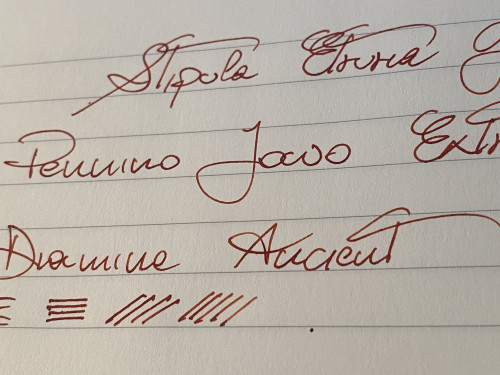 Stipula Etruria
Pennino Jowo Extr
Diamine Ancient